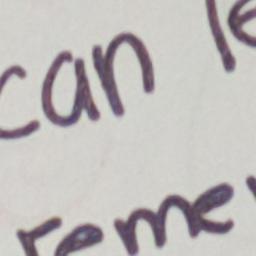 can le
reme